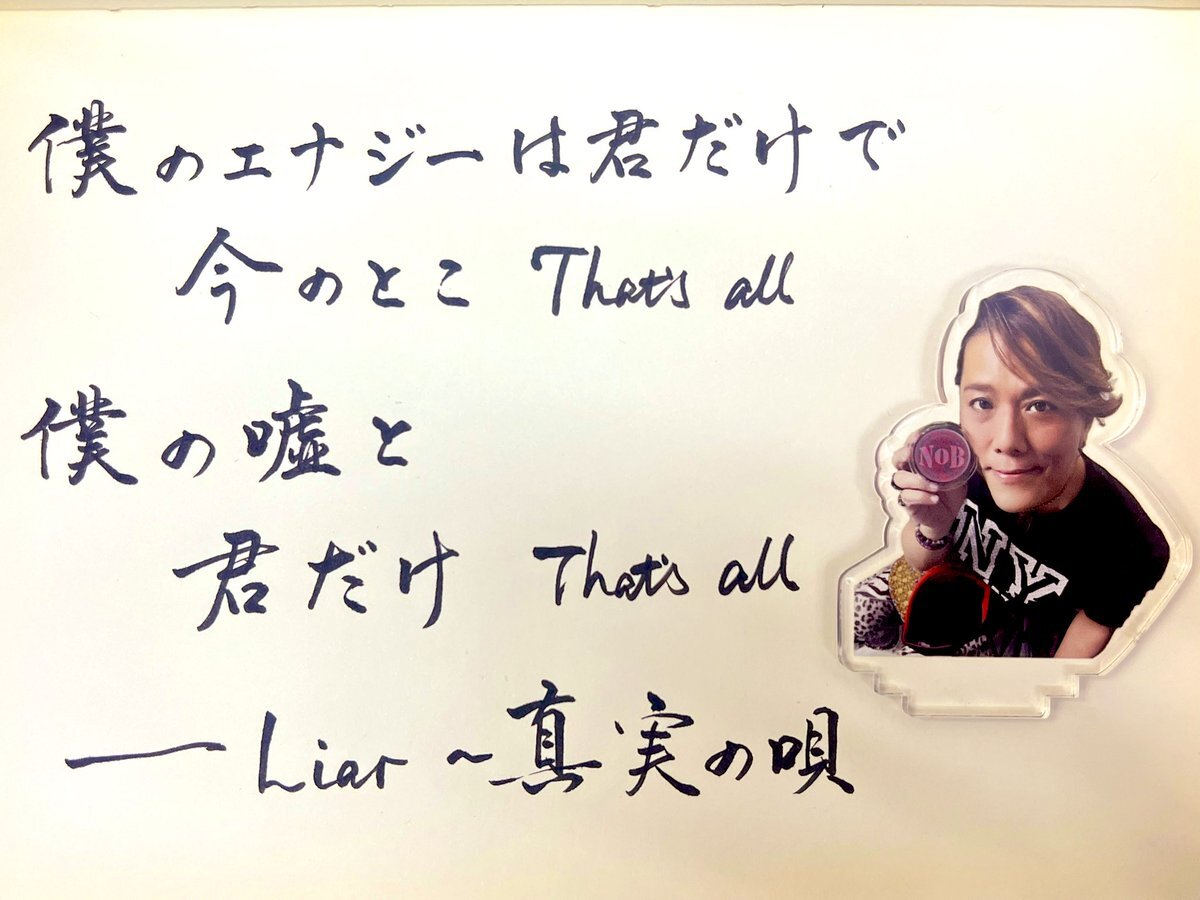 僕のエナジーは君だけで
今のとこ That's all
僕の嘘と
君だけ That's all
―Liar ~真実の唄
NoB
NY